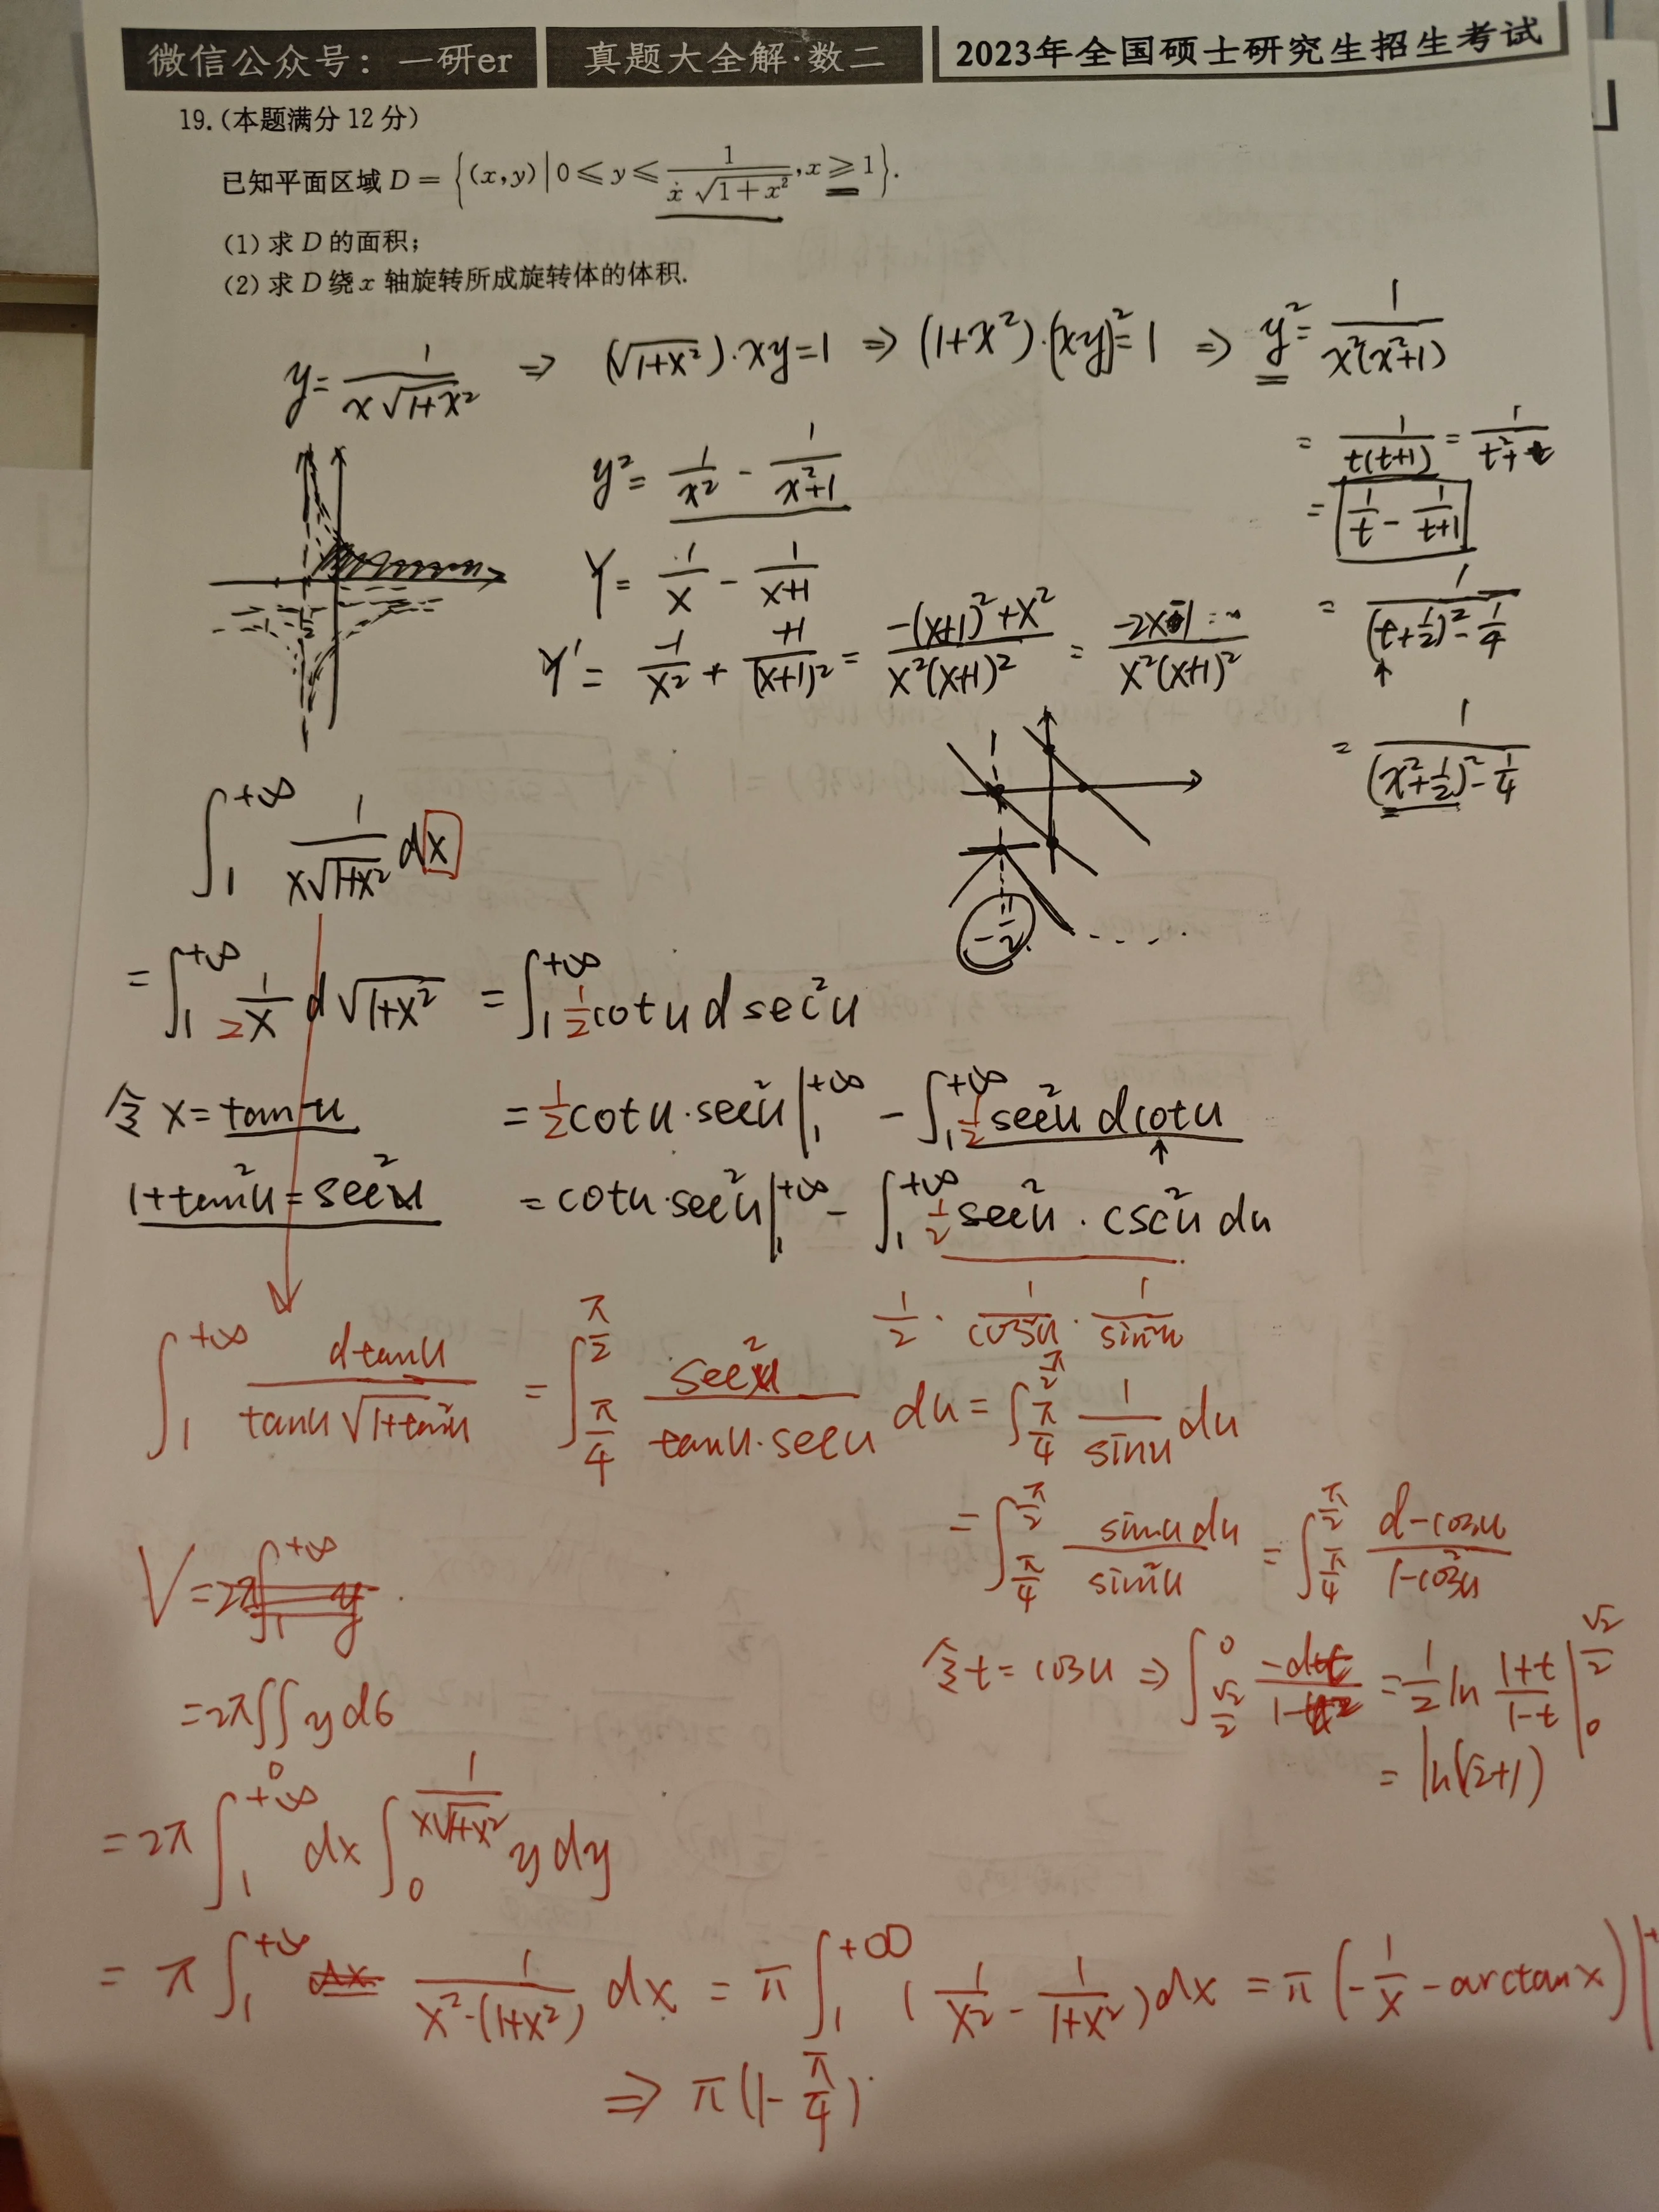 微信公众号：一研er 真题大全解·数二 2023年全国硕士研究生招生考试
19.(本题满分 12 分)
已知平面区域 D = {(x,y) | 0 ≤ y ≤ 1/(x√(1+x²)), x ≥ 1}.
(1) 求 D 的面积;
(2) 求 D 绕 x 轴旋转所成旋转体的体积.
y = 1/(x√(1+x²)) ⇒ (√(1+x²))·xy=1 ⇒ (1+x²)·(xy)²=1 ⇒ y² = 1/(x²(x²+1))
= 1/(t(t+1)) = 1/(t²+t)
y² = 1/x² - 1/(x²+1)
= 1/t - 1/(t+1)
Y = 1/x - 1/(x+1)
= 1/((t+1/2)² - 1/4)
Y' = -1/x² + +1/(x+1)² = (-(x+1)²+x²)/(x²(x+1)²) = (-2x-1)/(x²(x+1)²)
= 1/((x²+1/2)² - 1/4)
-1/2
∫₁^{+∞} 1/(x√(1+x²)) dx
= ∫₁^{+∞} 1/(2x) d√(1+x²) = ∫₁^{+∞} 1/2 cotu d sec²u
令 x = tanu = 1/2 cotu·sec²u |₁^{+∞} - ∫₁^{+∞} 1/2 sec²u dcotu
1+tan²u = sec²u = cotu·sec²u |₁^{+∞} - ∫₁^{+∞} 1/2 sec²u · csc²u du
1/2 · 1/cos²u · 1/sin²u
∫₁^{+∞} dtanu/(tanu√(1+tan²u)) = ∫_{π/4}^{π/2} sec²u/(tanu·secu) du = ∫_{π/4}^{π/2} 1/sinu du
= ∫_{π/4}^{π/2} sinu du/sin²u = ∫_{π/4}^{π/2} d-cosu/(1-cos²u)
令 t = cosu ⇒ ∫_{√2/2}^{0} -dt/(1-t²) = 1/2 ln (1+t)/(1-t) |_0^{√2/2}
= ln(√2+1)
V = 2π∫₁^{+∞} y
= 2π∬ y dσ
D
= 2π ∫₁^{+∞} dx ∫₀^{1/(x√(1+x²))} y dy
= π ∫₁^{+∞} dx 1/(x²·(1+x²)) dx = π ∫₁^{+∞} (1/x² - 1/(1+x²))dx = π (-1/x - arctanx)|
⇒ π(1 - π/4).